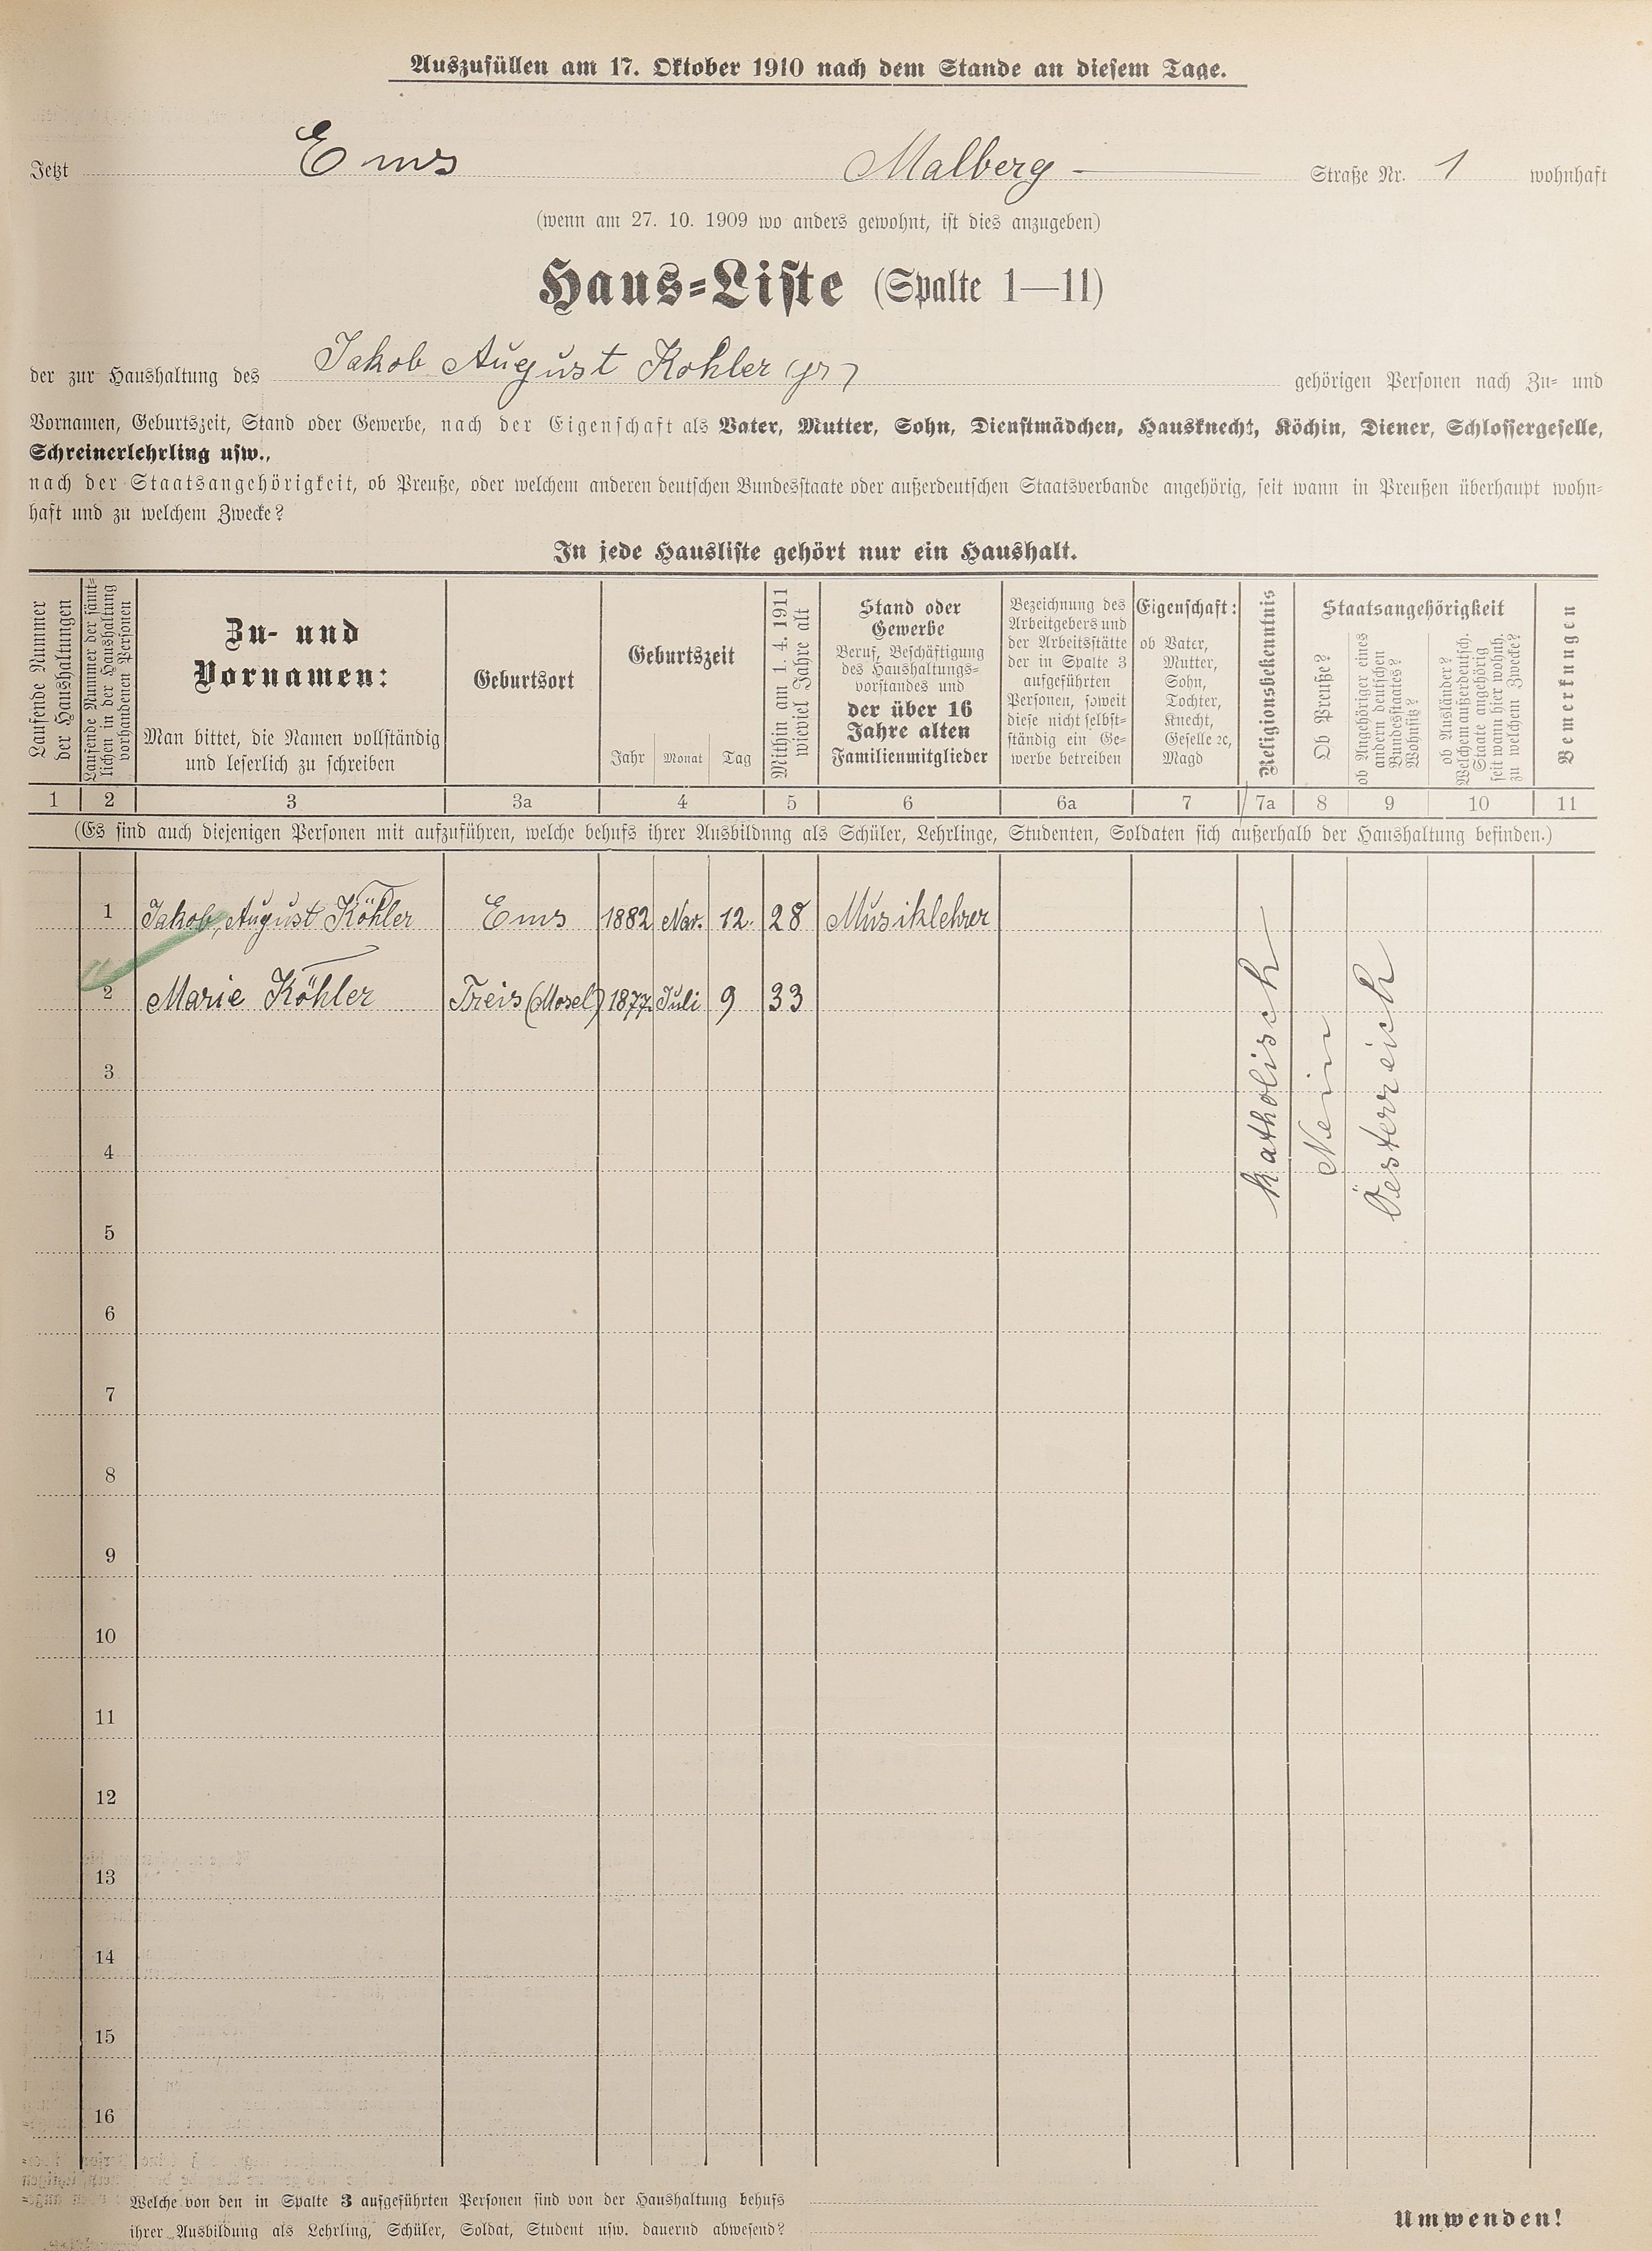 Auszufüllen am 17. Oktober 1910 nach dem Stande an diesem Tage.
Jetzt Ems Malberg - Straße Nr. 1 wohnhaft
(wenn am 27. 10. 1909 wo anders gewohnt, ist dies anzugeben)
Haus=Liste (Spalte 1—11)
der zur Haushaltung des Jakob August Kohler (jr) gehörigen Personen nach Zu= und
Vornamen, Geburtszeit, Stand oder Gewerbe, nach der Eigenschaft als Vater, Mutter, Sohn, Dienstmädchen, Hausknecht, Köchin, Diener, Schlossergeselle,
Schreinerlehrling usw.,
nach der Staatsangehörigkeit, ob Preuße, oder welchem anderen deutschen Bundesstaate oder außerdeutschen Staatsverbande angehörig, seit wann in Preußen überhaupt wohn=
haft und zu welchem Zwecke?
In jede Hausliste gehört nur ein Haushalt.
Laufende Nummer
der Haushaltungen
Laufende Nummer der sämt=
lichen in der Haushaltung
vorhandenen Personen
Zu- und
Vornamen:
Man bittet, die Namen vollständig
und leserlich zu schreiben
Geburtsort
Geburtszeit
Jahr Monat Tag
Mithin am 1. 4. 1911
wieviel Jahre alt
Stand oder
Gewerbe
Beruf, Beschäftigung
des Haushaltungs=
vorstandes und
der über 16
Jahre alten
Familienmitglieder
Bezeichnung des
Arbeitgebers und
der Arbeitsstätte
der in Spalte 3
aufgeführten
Personen, soweit
diese nicht selbst=
ständig ein Ge=
werbe betreiben
Eigenschaft:
ob Vater,
Mutter,
Sohn,
Tochter,
Knecht,
Geselle ꝛc,
Magd
Religionsbekenntnis
Staatsangehörigkeit
Ob Preuße?
ob Angehöriger eines
andern deutschen
Bundesstaates?
Wohnsitz?
ob Ausländer?
Welchem außerdeutsch.
Staate angehörig
seit wann hier wohnh.
zu welchem Zwecke?
Bemerkungen
1 2 3 3a 4 5 6 6a 7 7a 8 9 10 11
(Es sind auch diejenigen Personen mit aufzuführen, welche behufs ihrer Ausbildung als Schüler, Lehrlinge, Studenten, Soldaten sich außerhalb der Haushaltung befinden.)
1 Jakob, August Köhler Ems 1882 Nov. 12. 28 Musiklehrer
2 Marie Köhler Treis (Mosel) 1877. Juli 9 33
katholisch
Nein
Österreich
3
4
5
6
7
8
9
10
11
12
13
14
15
16
Welche von den in Spalte 3 aufgeführten Personen sind von der Haushaltung behufs
ihrer Ausbildung als Lehrling, Schüler, Soldat, Student usw. dauernd abwesend?
Umwenden!